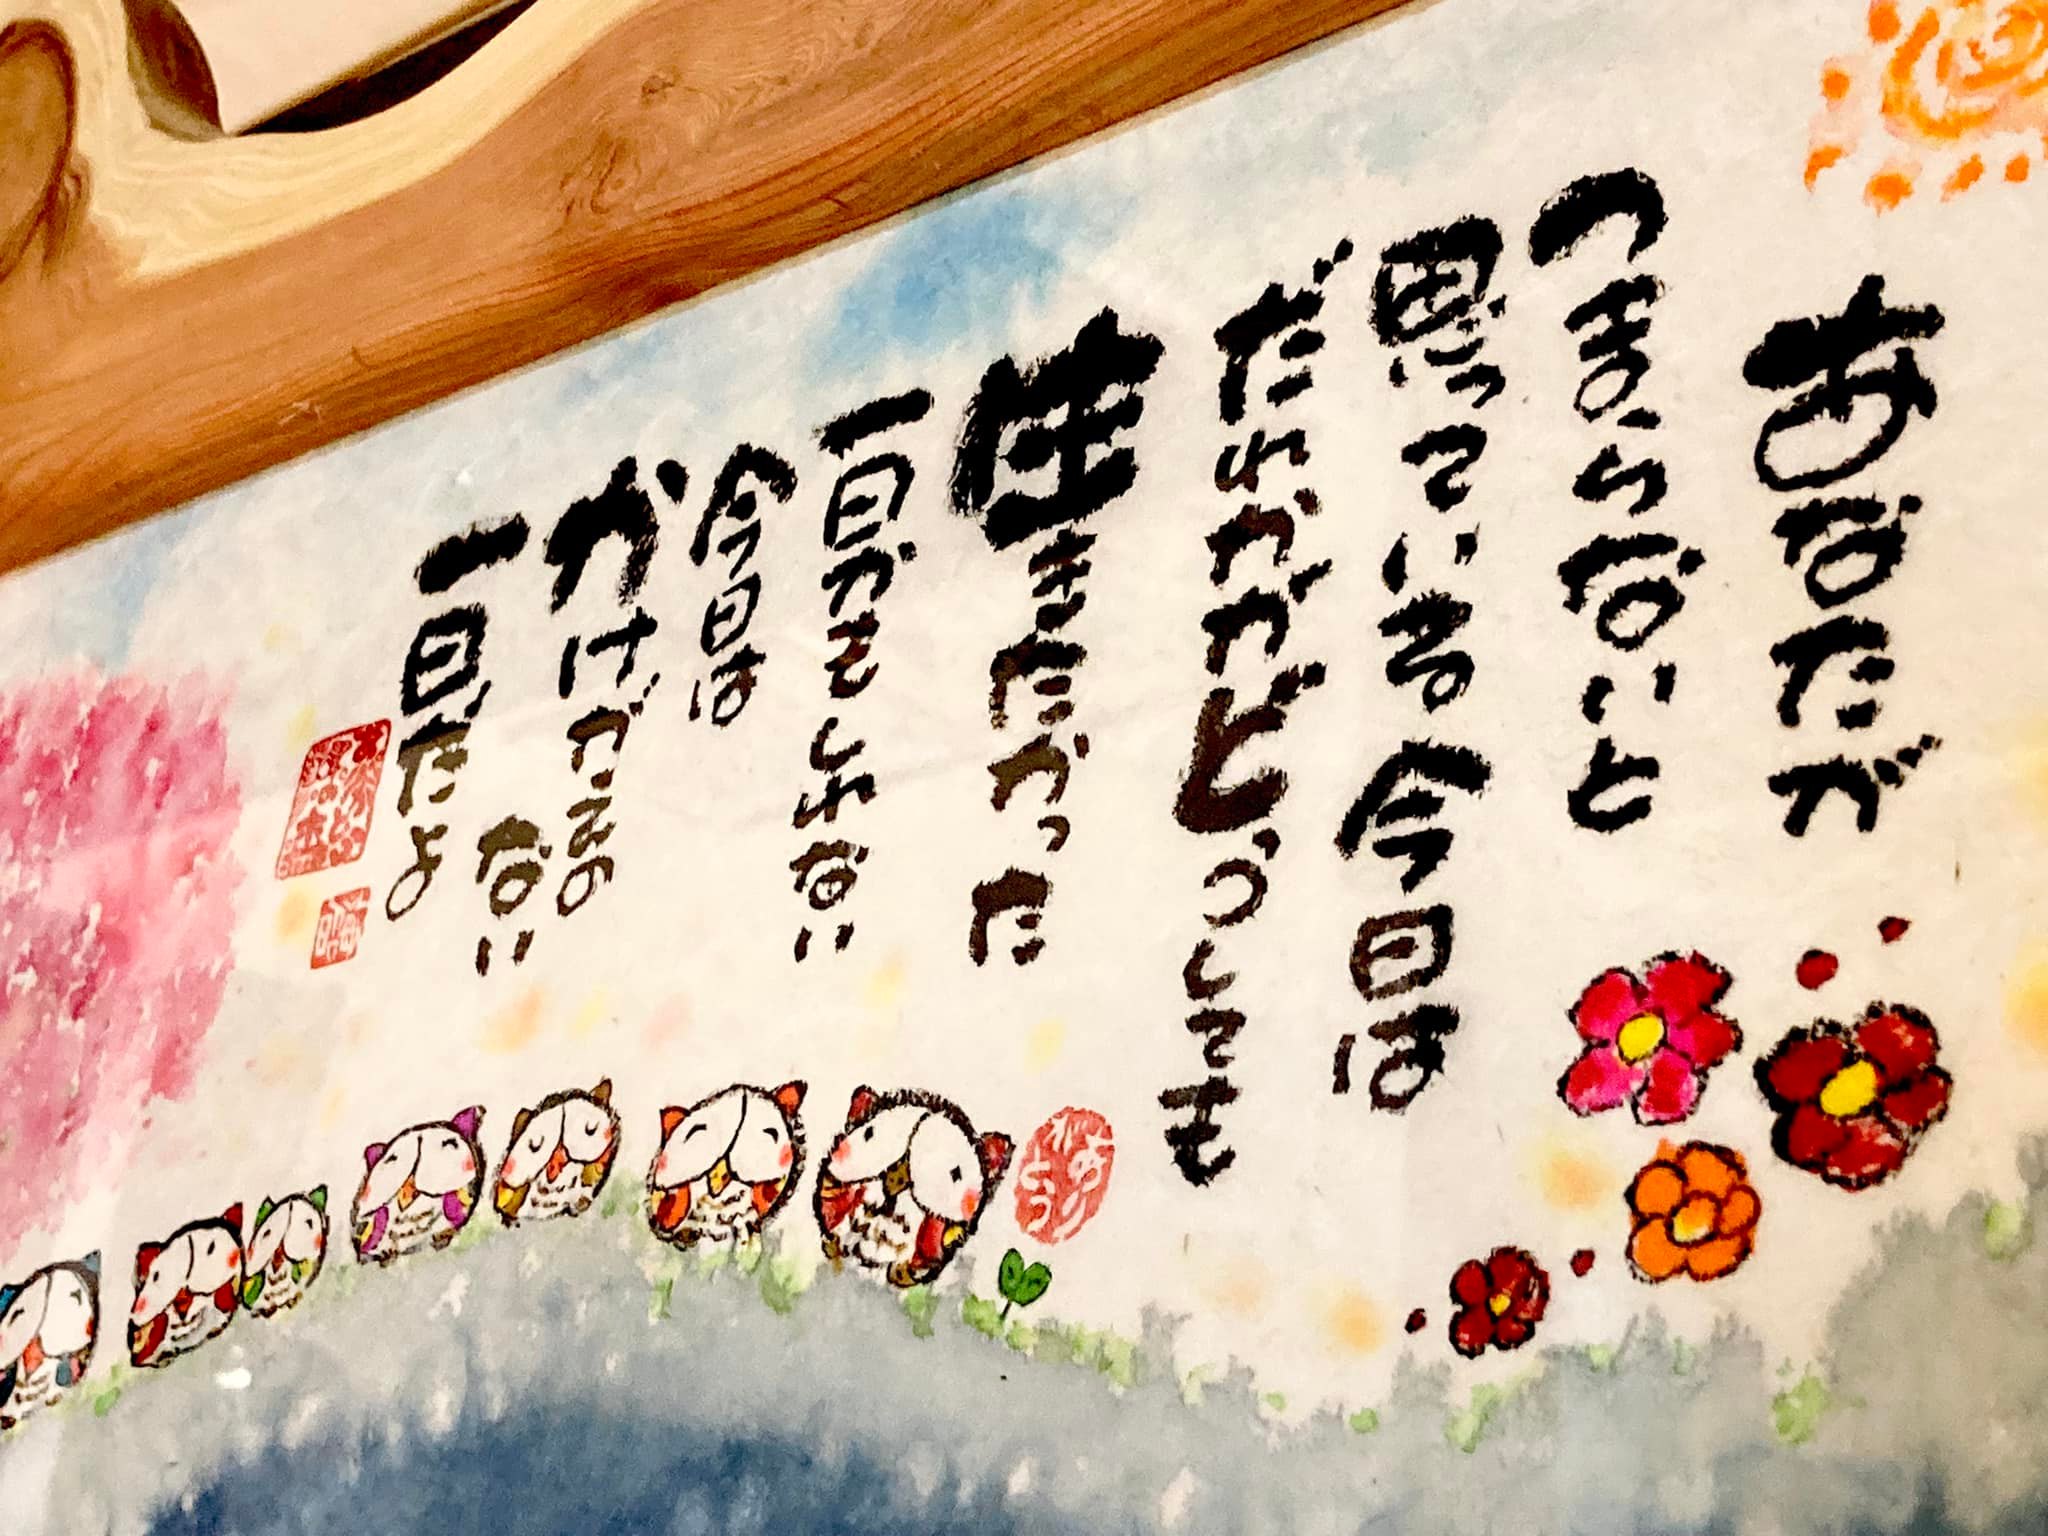 あなたが
つまらないと
思っている今日は
だれかがどうしても
生きたかった
一日かもしれない
今日は
かけがえの
ない
一日だよ
ありがとう